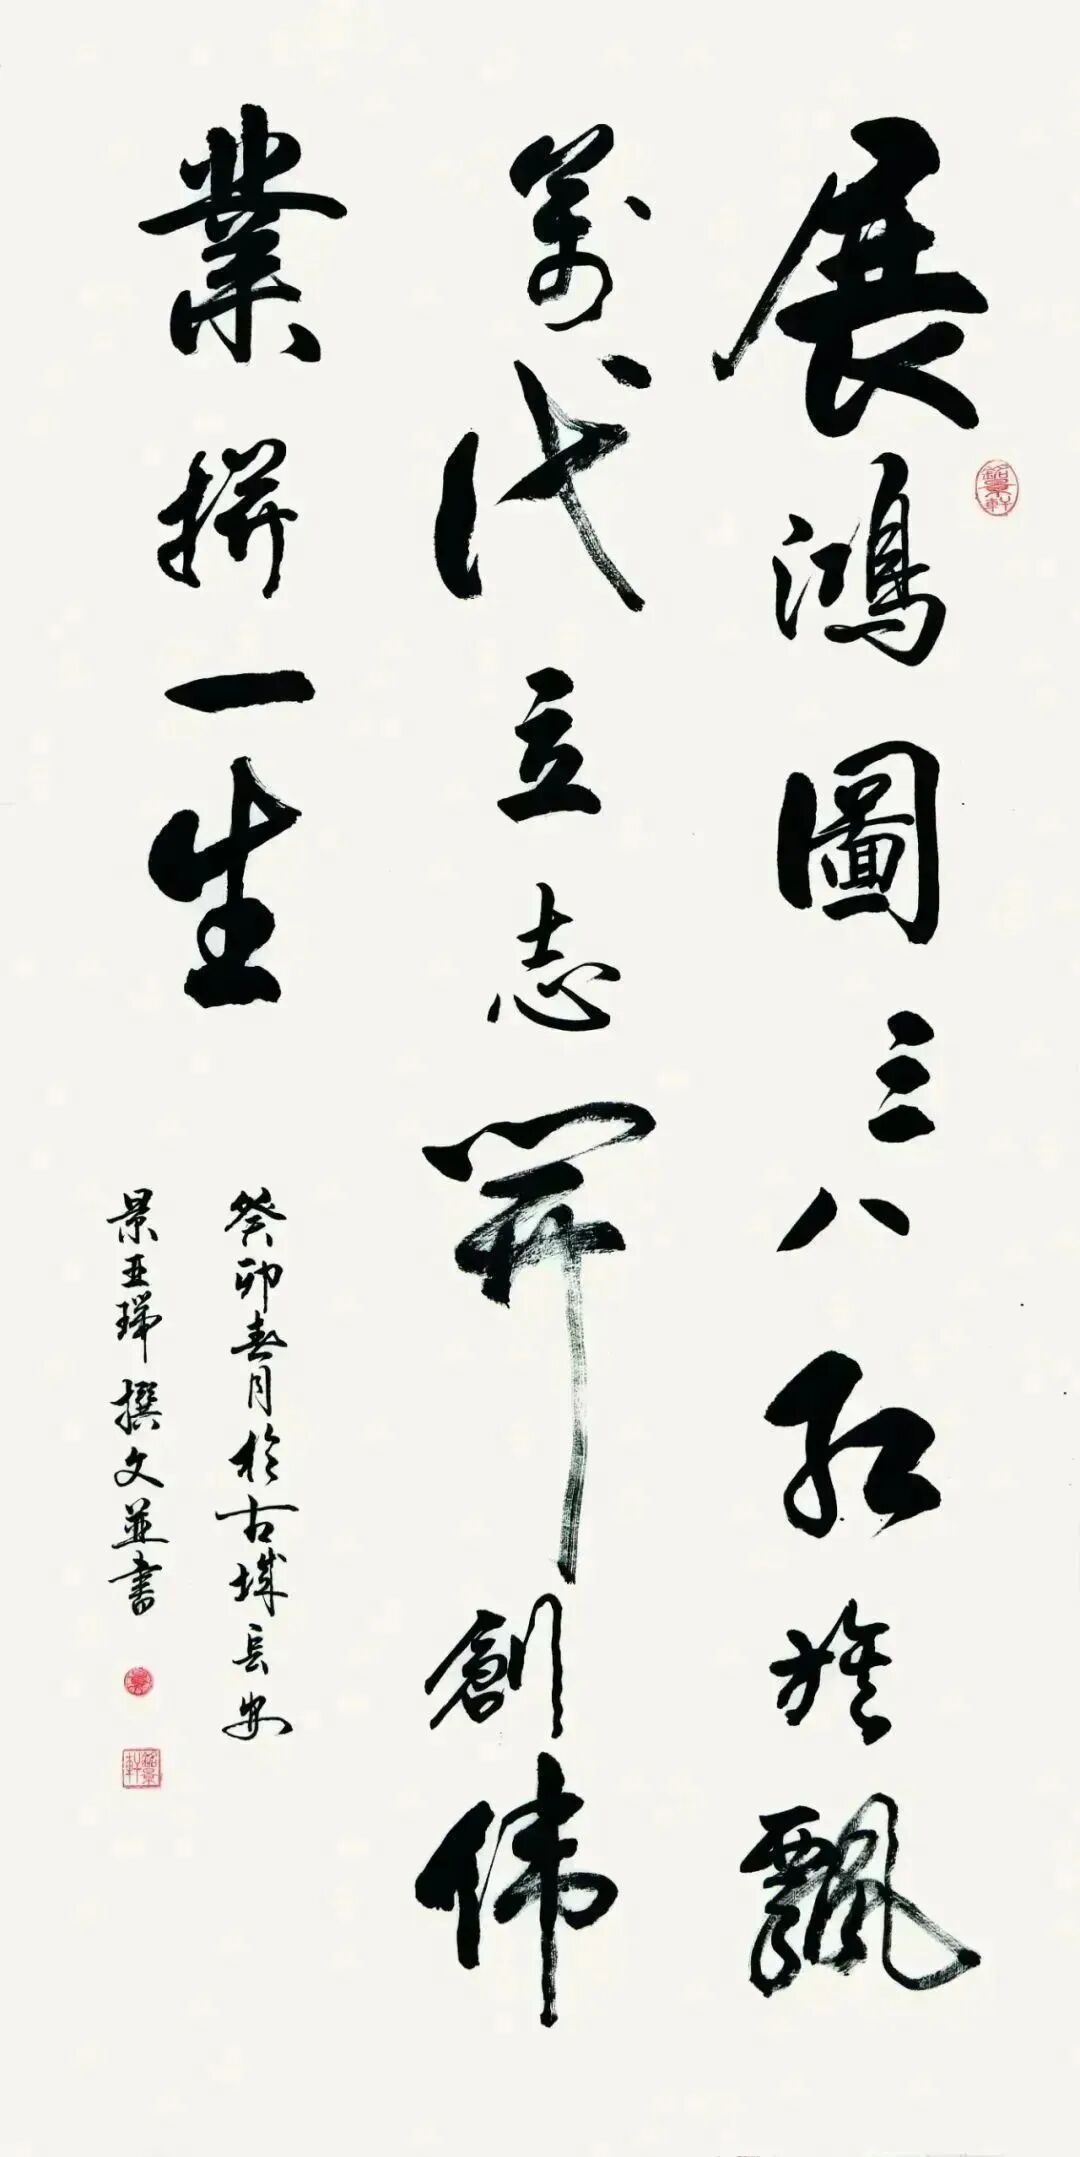 展鴻圖三八紅旌飄
萬代立志開創偉
業拼一生
癸卯春月於古城長安
景亚瑞撰文並書